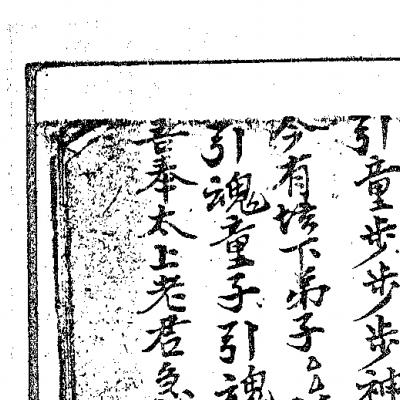 引童步步步神
今有坛下弟子
引魂童子引魂
吾奉太上老君急